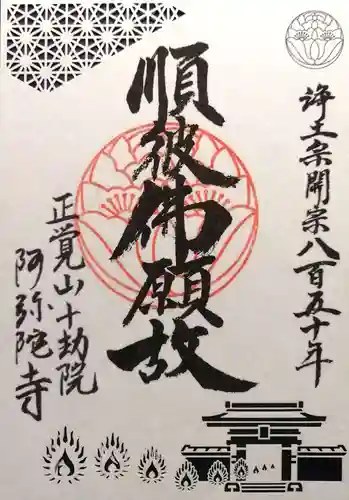 浄土宗開宗八百五十年
順彼佛願故
正覚山十劫院
阿弥陀寺